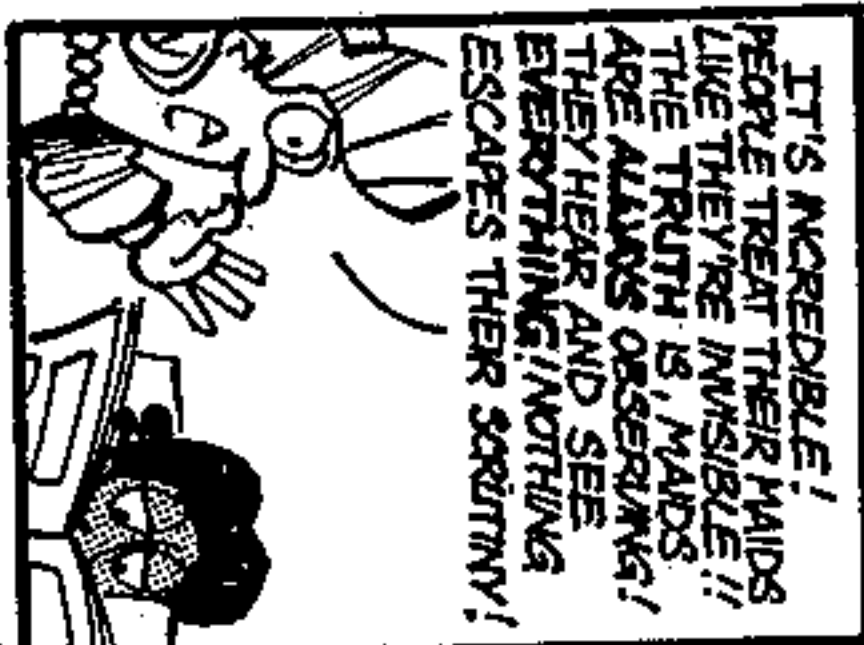 IT'S INCREDIBLE!
PEOPLE TREAT THEIR MAIDS
LIKE THEY'RE INVISIBLE!!
THE TRUTH IS, MAIDS
ARE ALWAYS OBSERVING!
THEY HEAR AND SEE
EVERYTHING! NOTHING
ESCAPES THEIR SCRUTINY!